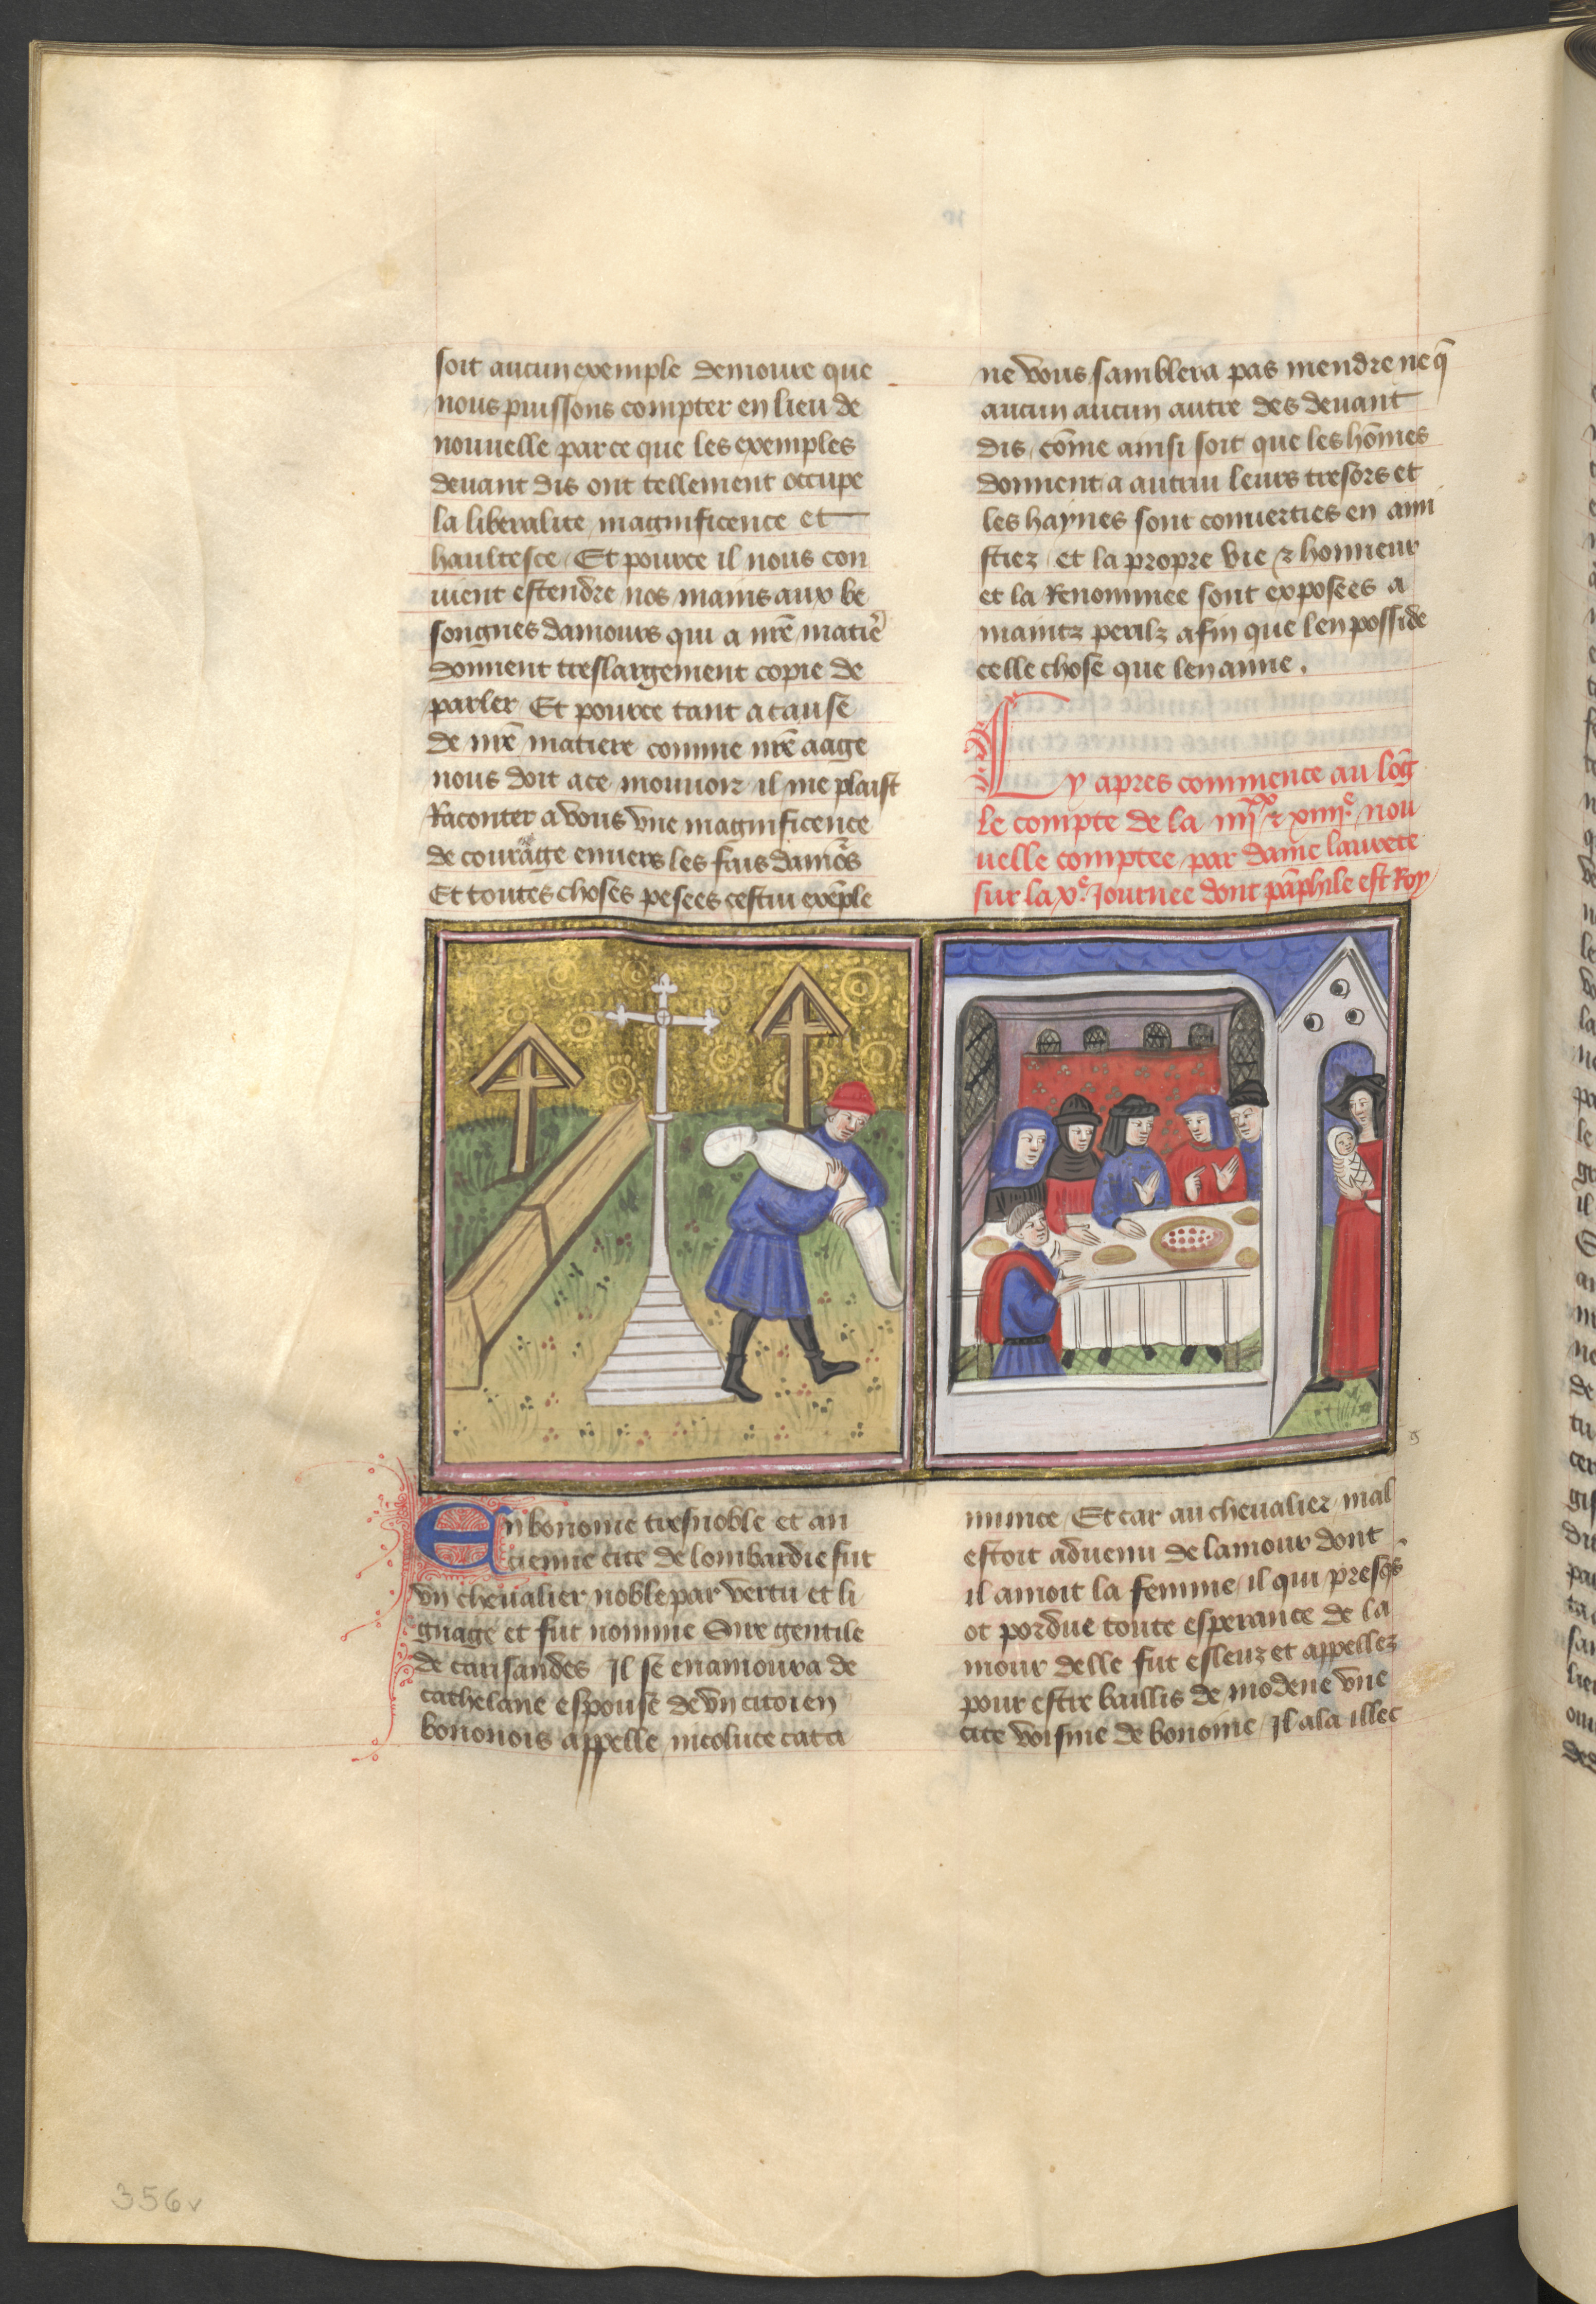 soit aucun exemple demoure que
nous puissons compter en lieu de
nouuelle par ce que les exemples
deuant dis ont tellement occupe
la liberalite magnificence et
haultesce Et pource il nous con
uient estendre nos mains aux be
songnes damours qui a nr̄e matie᷑
donnent treslargement copie de
parler Et pource tant a cause
de nr̄e matiere comme nr̄e aage
nous doit a ce mouuoir il me plaist
Raconter a vous vne magnificence
de courage enuers les fais damo᷑s
Et toutes choses pesees cestui exēple
ne vous samblera pas mendre ne q̄
aucun aucun autre des deuant
dis cōme ainsi soit que les hōmes
donnent a autrui leurs tresors et
les haynes sont conuerties en ami
stiez et la propre vie ⁊ honneur
et la Renommee sont exposees a
maintz perilz afin que len posside
celle chose que len aime.
Cy apres commence au lōg
le compte de la iiiiˣˣ ⁊ xiiiiᵉ nou
uelle comptee par dame laurete
sur la xᵉ Journee dont pāphile est Roy
En bonome tresnoble et an
cienne cite de lombardie fut
vn cheualier noble par vertu et li
gnage et fut nomme Sire gentile
de carisandes Il se enamoura de
cathelane espouse de vn citoien
bononois appelle nicoluce cacci
nimice Et car au cheualier mal
estoit aduenu de lamour dont
il amoit la femme il qui presq̄s
ot perdue toute esperance de la
mour delle fut esleuz et appellez
pour estre baillis de modene vne
cite voisine de bonome Il ala illec
356v